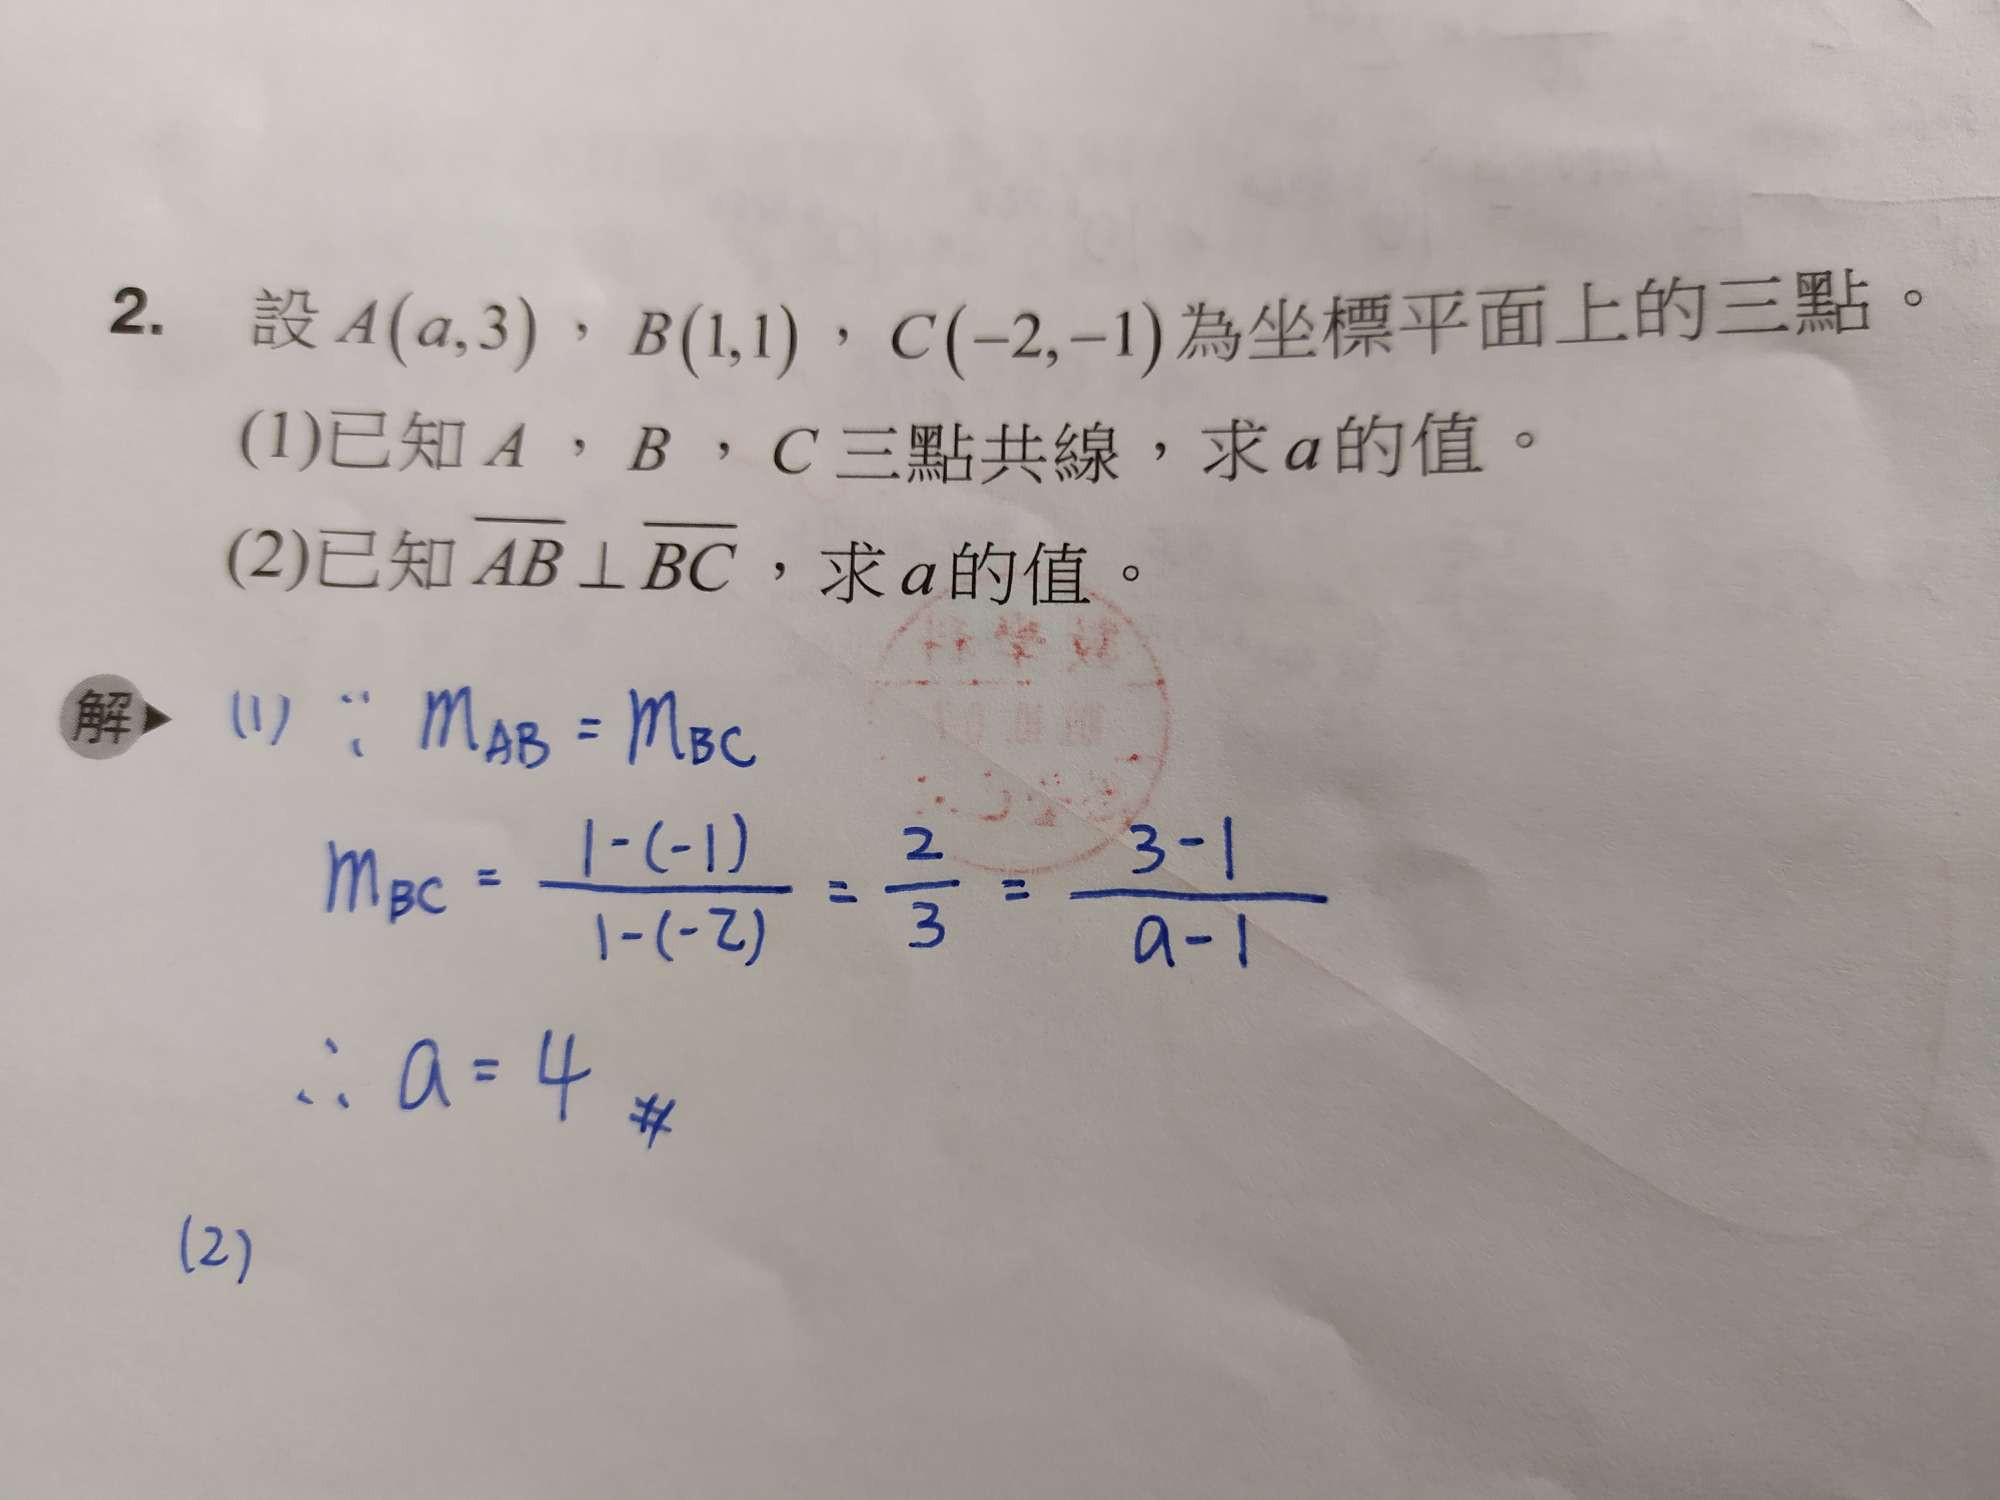 2. 設 A(a,3)，B(1,1)，C(−2,−1)為坐標平面上的三點。
(1)已知 A，B，C 三點共線，求 a 的值。
(2)已知 \overline{AB} ⊥ \overline{BC}，求 a 的值。
解▶ (1) ∵ m_{AB} = m_{BC}
m_{BC} = \frac{1-(-1)}{1-(-2)} = \frac{2}{3} = \frac{3-1}{a-1}
∴ a = 4 #
(2)